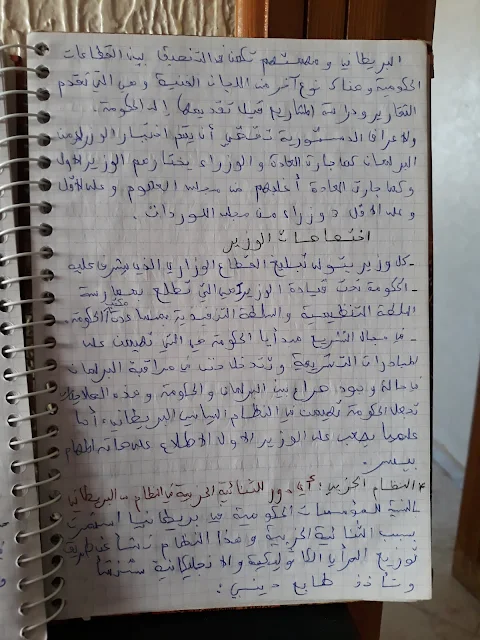 البريطانيا و مهمتهم تكمن في التنسيق بين القطاعات
الحكومية وهناك نوع آخر من اللجان الفنية و هي التي تقدم
التقارير ودراسة المشاريع قبل تقديمها إلى الحكومة.
والأعراف الدستورية تقتضي أن يتم اختيار الوزراء من
البرلمان كما جارة العادة و الوزراء يختارهم الوزير الأول
وكما جارة العادة أغلبهم من مجلس العموم و على الأقل
وعلى الأقل وزراء من مجلس اللوردات.
اختصاصات الوزير
- كل وزير يتولى تسيير القطاع الوزاري الذي يشرف عليه
- الحكومة تحت قيادة الوزير هي التي تطلع بممارسة
السلطة التنظيمية و السلطة التنفيذية بمساعدة الحكومة.
- في مجال التشريع الحكومة هي التي تهيمن على
المبادرات التشريعية و تتدخل حتى في مراقبة البرلمان
في حالة وجود صراع بين البرلمان والحكومة و هذه
تجعل الحكومة تهيمن في النظام البريطاني، أما
علميا يصعب على الوزير الأول الاطلاع على هاته المهام
بيسر.
النظام الحزبي: دور الثنائية الحزبية في النظام البريطاني
المؤسسات الحكومية في بريطانيا استمرت
بسبب الثنائية الحزبية و هذا النظام ناشأ عن طريق
توزيع المرايا الكاثوليكية والانجليكانية
وتأخذ طابع ديني: